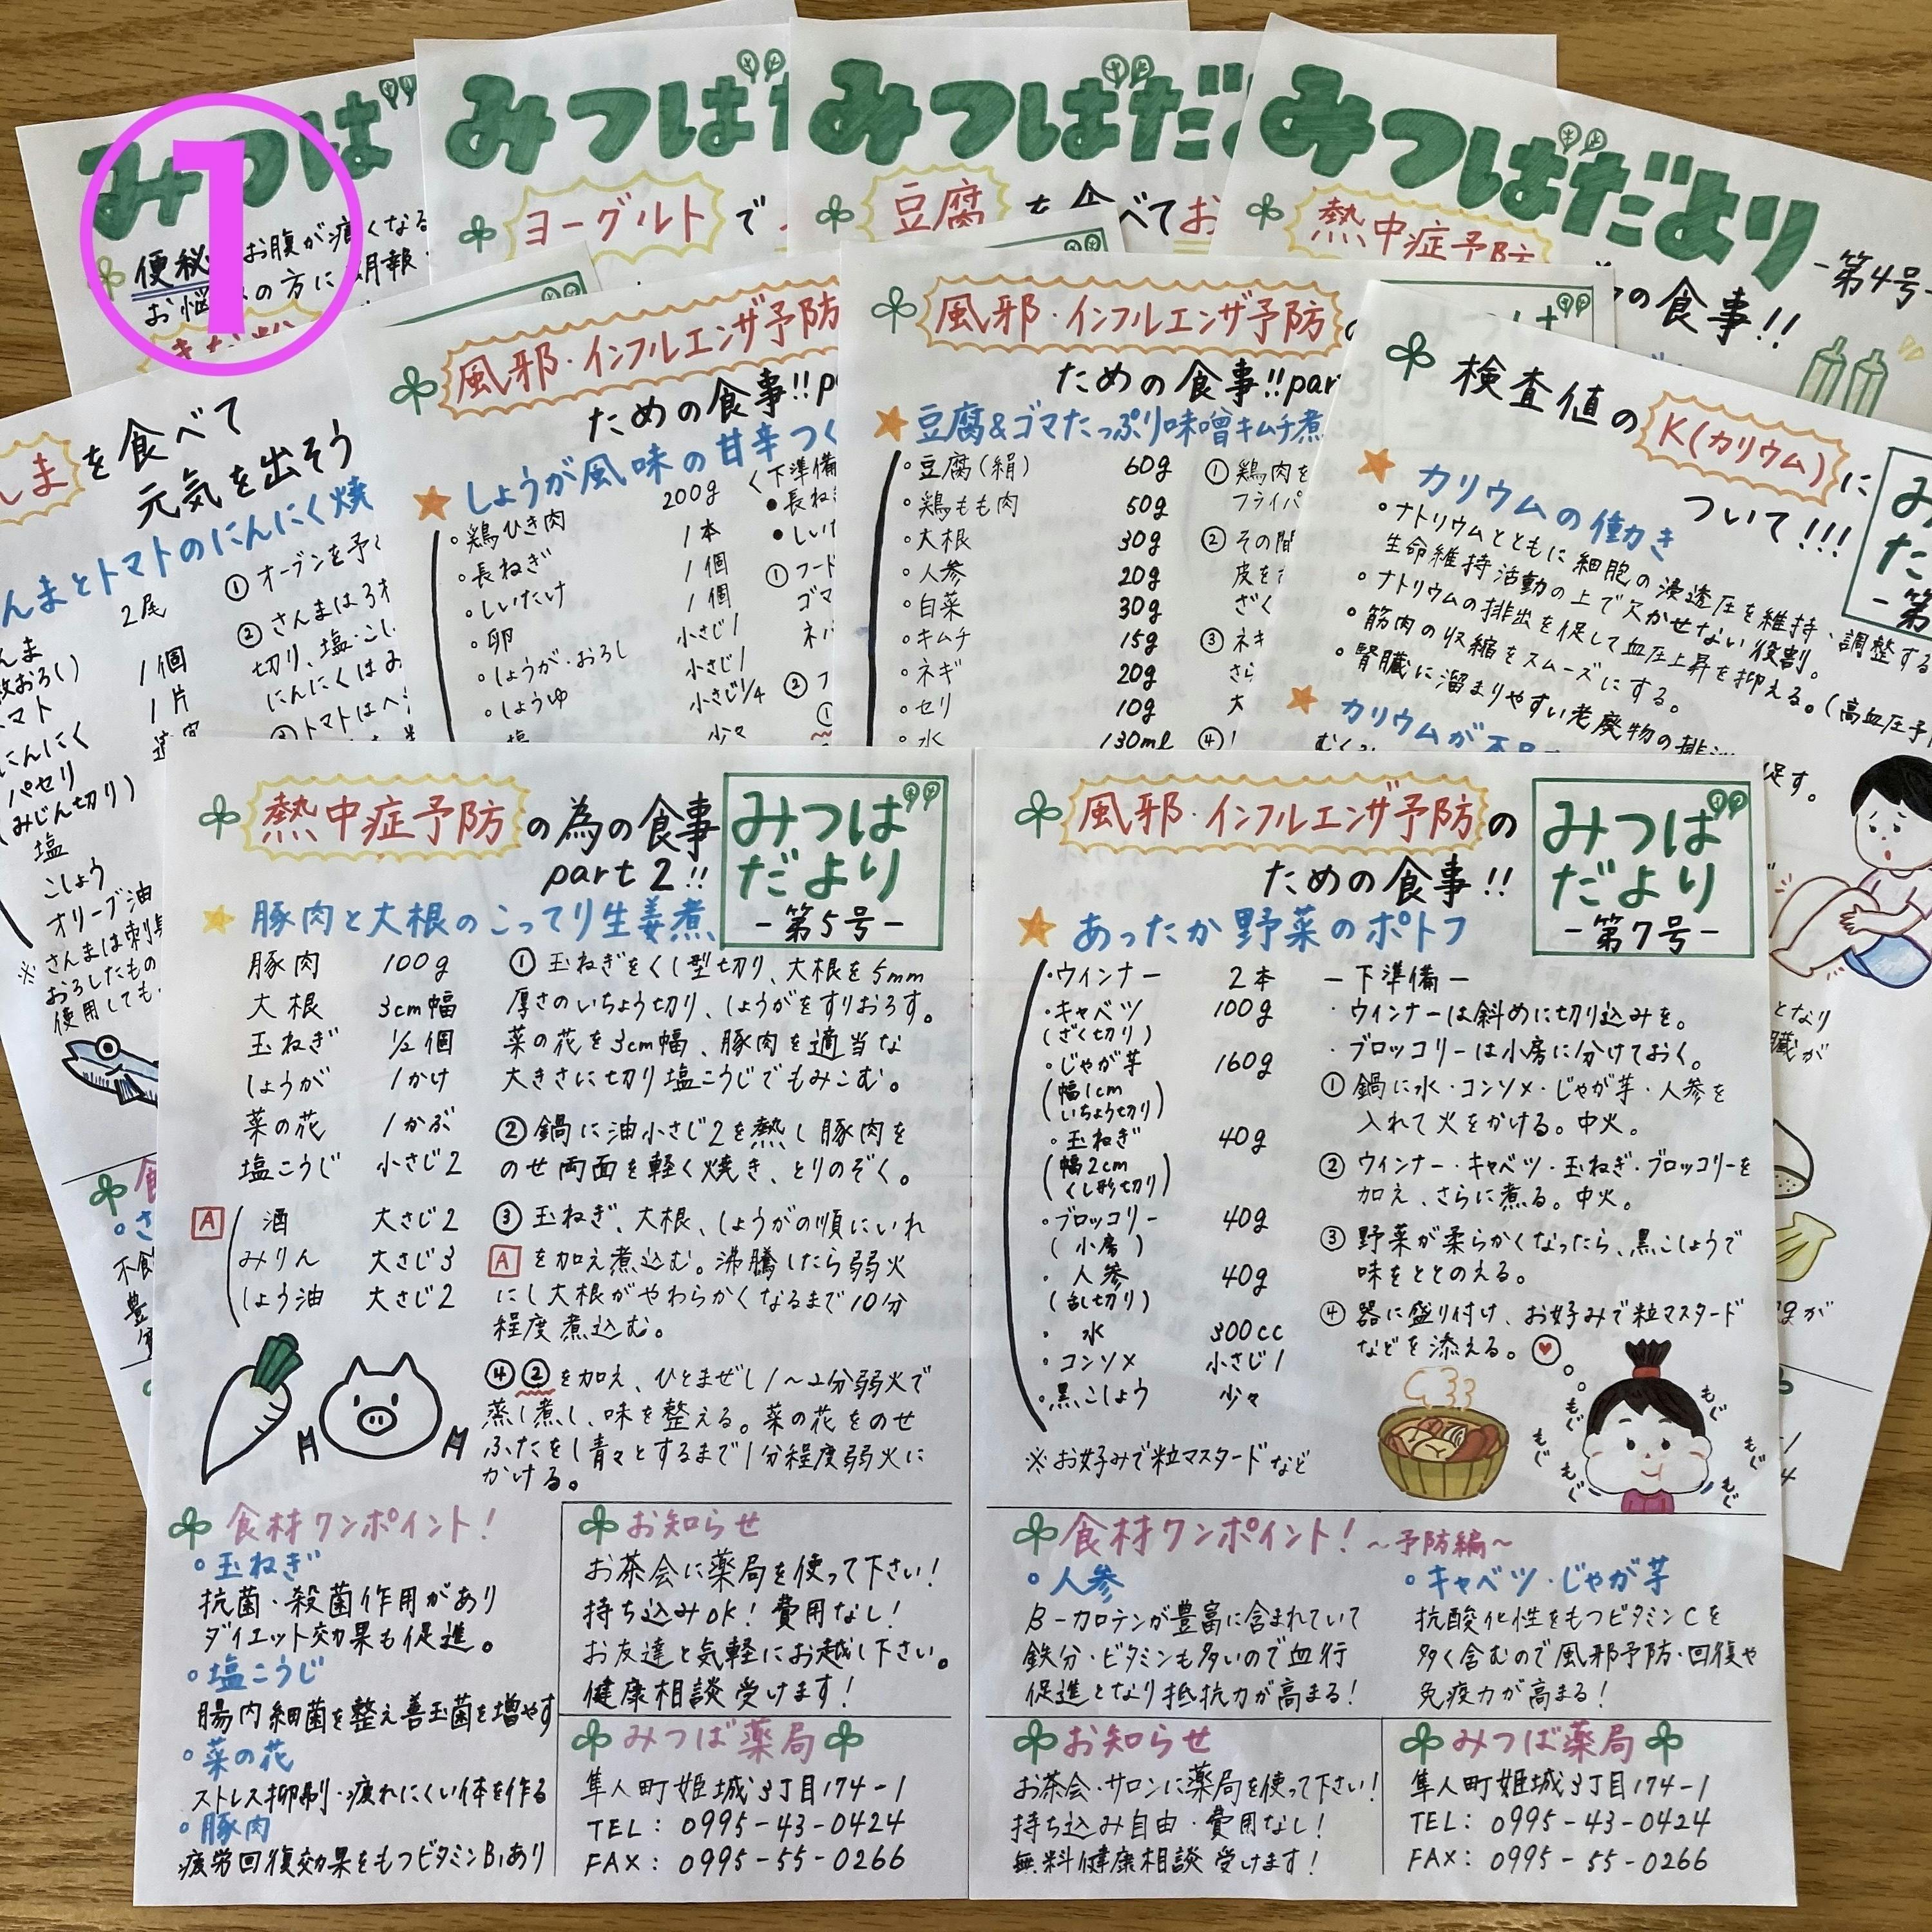 ①
みつば
便秘
お腹が痛くなる
お悩
の方に
朗報
みつばだ
ヨーグルトで
みつばだ
豆腐を食べてお
みつばだより
-第4号-
熱中症予防
の食事!!
しまを食べて
元気を出そう
んまとトマトのにんにく焼
んま 2尾
枚おろし)
トマト 1個
にんにく 1片
パセリ
(みじん切り)
塩
こしょう
オリーブ油
※さんまは刺身
おろしたもの
使用しても
① オーブンを予
② さんまは3
切り、塩・こし
にんにくはみ
トマトはへ
風邪・インフルエンザ予防
ための食事!!
しょうが風味の甘辛つく
・鶏ひき肉 200g
・長ねぎ 1本
・しいたけ 1個
・卵 1個
・しょうが・おろし 小さじ1
・しょうゆ 小さじ1
塩 小さじ1/4
少々
<下準備
●長ね
●しいた
① フード
ゴマ
②フ
風邪・インフルエンザ予防の
ための食事!!par
豆腐&ゴマたっぷり味噌キムチ煮
・豆腐(絹) 60g
・鶏もも肉 50g
・大根 30g
・人参 20g
・白菜 30g
・キムチ 15g
・ネギ 20g
・セリ 10g
・水 130ml
① 鶏肉を
フライパ
② その間
皮を
ざく
③ ネギ
さら
大
④
検査値のK(カリウム)に
ついて!!!
カリウムの働き
・ナトリウムとともに細胞の浸透圧を維持、調整する
生命維持活動の上で欠かせない役割。
・ナトリウムの排出を促して血圧上昇を抑える。(高血圧予
・筋肉の収縮をスムーズにする。
・腎臓に溜まりやすい老廃物の排
促す。
カリウムが不
熱中症予防の為の食事
part2!!
みつば
だより
-第5号-
豚肉と大根のこってり生姜煮
豚肉 100g
大根 3cm幅
玉ねぎ 1/2個
しょうが 1かけ
菜の花 1かぶ
塩こうじ 小さじ2
A
酒 大さじ2
みりん 大さじ3
しょう油 大さじ2
① 玉ねぎをくし型切り、大根を5mm
厚さのいちょう切り、しょうがをすりおろす。
菜の花を3cm幅、豚肉を適当な
大きさに切り塩こうじでもみこむ。
② 鍋に油小さじ2を熱し豚肉を
のせ両面を軽く焼き、とりのぞく。
③ 玉ねぎ、大根、しょうがの順にいれ
Aを加え煮込む。沸騰したら弱火
にし大根がやわらかくなるまで10分
程度煮込む。
④②を加え、ひとまぜし1〜2分弱火で
蒸し煮し、味を整える。菜の花をのせ
ふたをし青々とするまで1分程度弱火に
かける。
食材ワンポイント!
・玉ねぎ
抗菌・殺菌作用があり
ダイエット効果も促進。
・塩こうじ
腸内細菌を整え善玉菌を増やす
・菜の花
ストレス抑制・疲れにくい体を作る
・豚肉
疲労回復効果をもつビタミンB₁あり
お知らせ
お茶会に薬局を使って下さい!
持ち込みOK!費用なし!
お友達と気軽にお越し下さい。
健康相談受けます!
みつば薬局
隼人町姫城3丁目174-1
TEL: 0995-43-0424
FAX: 0995-55-0266
風邪・インフルエンザ予防の
ための食事!!
みつば
だより
-第7号-
あったか野菜のポトフ
・ウインナー 2本
・キャベツ 100g
(ざく切り)
・じゃが芋 160g
(幅1cm
いちょう切り)
・玉ねぎ 40g
(幅2cm
くし形切り)
・ブロッコリー 40g
(小房)
・人参 40g
(乱切り)
・水 300cc
・コンソメ 小さじ1
・黒こしょう 少々
※お好みで粒マスタードなど
-下準備-
・ウインナーは斜めに切り込みを。
・ブロッコリーは小房に分けておく。
① 鍋に水・コンソメ・じゃが芋・人参を
入れて火をかける。中火。
② ウインナー・キャベツ・玉ねぎ・ブロッコリーを
加え、さらに煮る。中火。
③ 野菜が柔らかくなったら、黒こしょうで
味をととのえる。
④ 器に盛り付け、お好みで粒マスタード
などを添える。
もぐ
もぐ
もぐ
もぐ
もぐ
もぐ
食材ワンポイント!〜予防編〜
・人参
β-カロテンが豊富に含まれていて
鉄分・ビタミンも多いので血行
促進となり抵抗力が高まる!
・キャベツ・じゃが芋
抗酸化性をもつビタミンCを
多く含むので風邪予防・回復や
免疫力が高まる!
お知らせ
お茶会・サロンに薬局を使って下さい!
持ち込み自由・費用なし!
無料健康相談受けます!
みつば薬局
隼人町姫城3丁目174-1
TEL: 0995-43-0424
FAX: 0995-55-0266